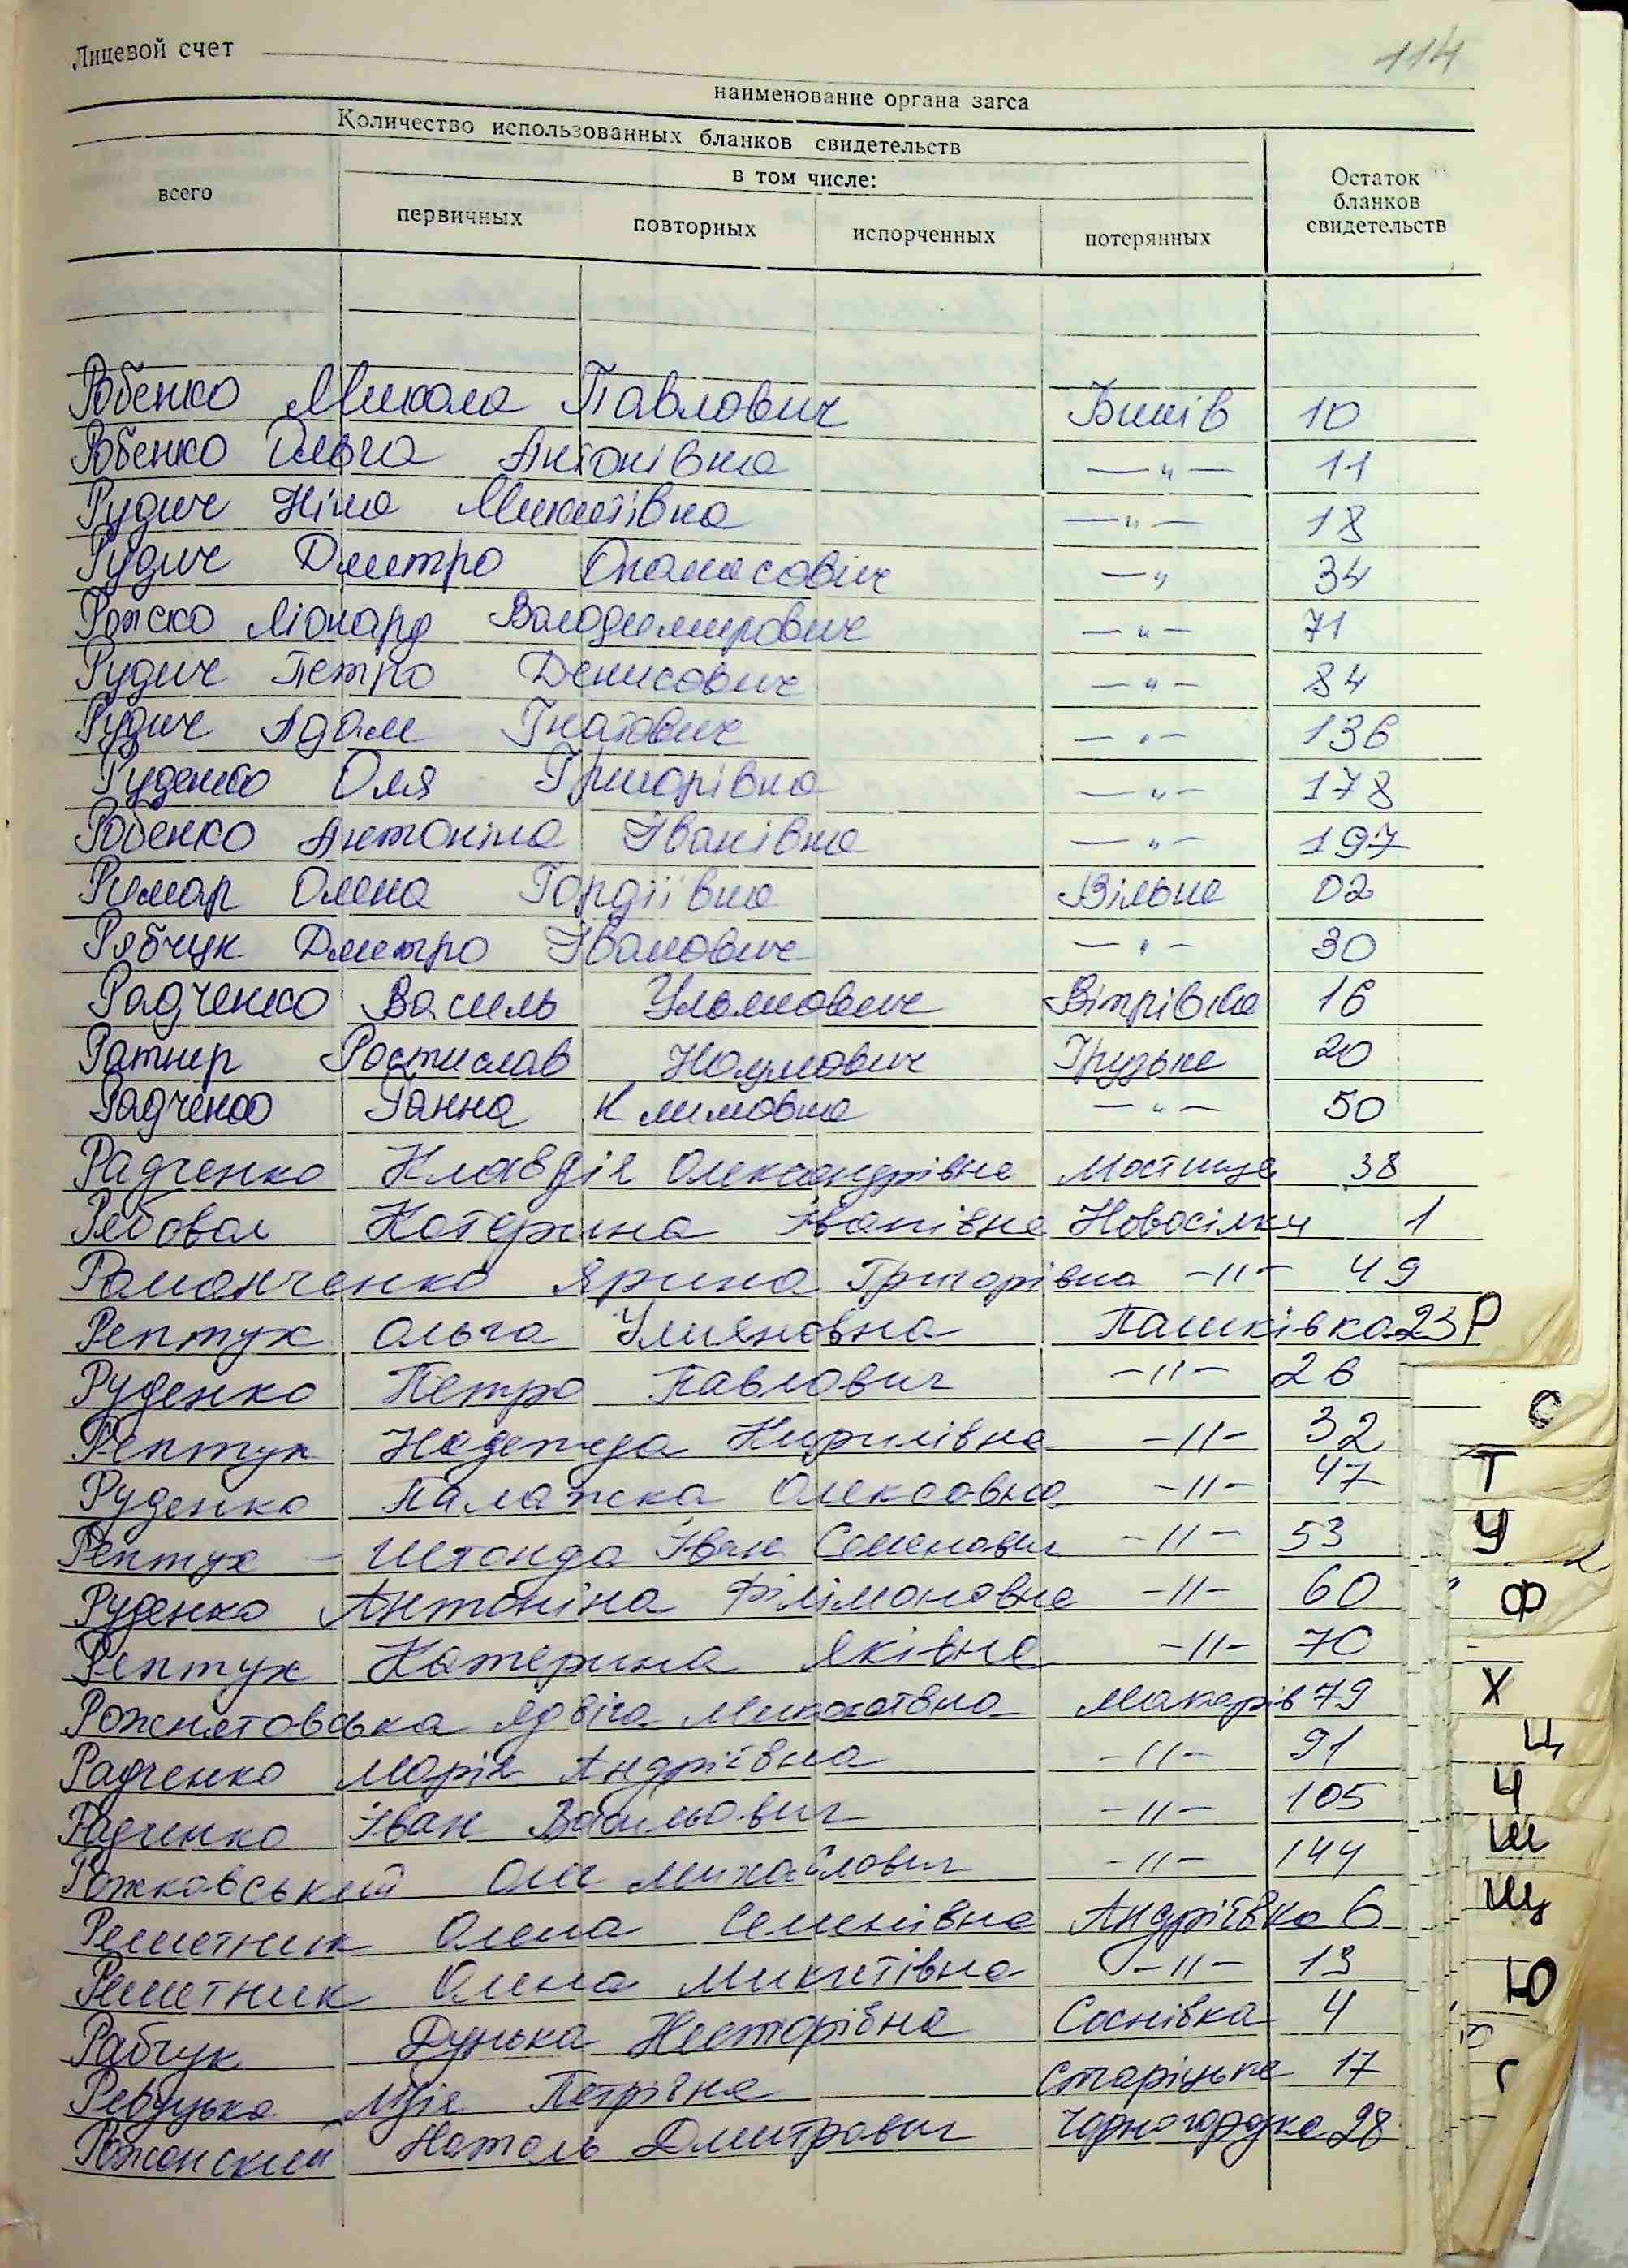 Лицевой счет
114
наименование органа загса
Количество использованных бланков свидетельств
в том числе:
всего
первичных
повторных
испорченных
потерянных
Остаток бланков свидетельств
Робенко Микола Павлович Бишів 10
Робенко Ольга Антонівна —"— 11
Рудич Ніна Микитівна —"— 18
Рудич Дмитро Опанасович —" 34
Рожко Ліонард Володимирович —"— 71
Рудич Петро Денисович —"— 84
Рудич Адам Гнатович —"— 136
Руденко Оля Григорівна —"— 178
Робенко Антоніна Іванівна —"— 197
Римар Олена Гордіївна Вільне 02
Рябчук Дмитро Іванович —"— 30
Радченко Василь Улянович Вітрівка 16
Ратнер Ростислав Наумович Грузьке 20
Радченко Ганна Климовна —"— 50
Радченко Клавдія Олександрівна Мостище 38
Рябовол Катерина Іванівна Новосілки 1
Романченко Ярина Григорівна -"- 49
Рептух Ольга Улияновна Пашківка 23
Р
Руденко Петро Павлович -"- 26
С
Рептух Надежда Кирилівна -"- 32
Руденко Палажка Олексовна -"- 47
Т
Рептух - Штонда Іван Семенович -"- 53
У
Руденко Антоніна Філімоновна -"- 60
Ф
Рептух Катерина Яківна -"- 70
Рожнятовська Ядвіга Макарів 79
Х
Радченко Марія Андріївна -"- 91
Ц
Радченко Іван Васильович -"- 105
Ч
Рожковський Олег Михайлович -"- 144
Ш
Решетник Олена Семенівна Андріївка 6
Щ
Решетник Олена Микитівна -"- 13
Ю
Рабчук Дунька Несторівна Соснівка 4
Ревуцька Лідія Петрівна Старіцьке 17
Г
Рожанский Натоль Дмитрович Чорногородка 28